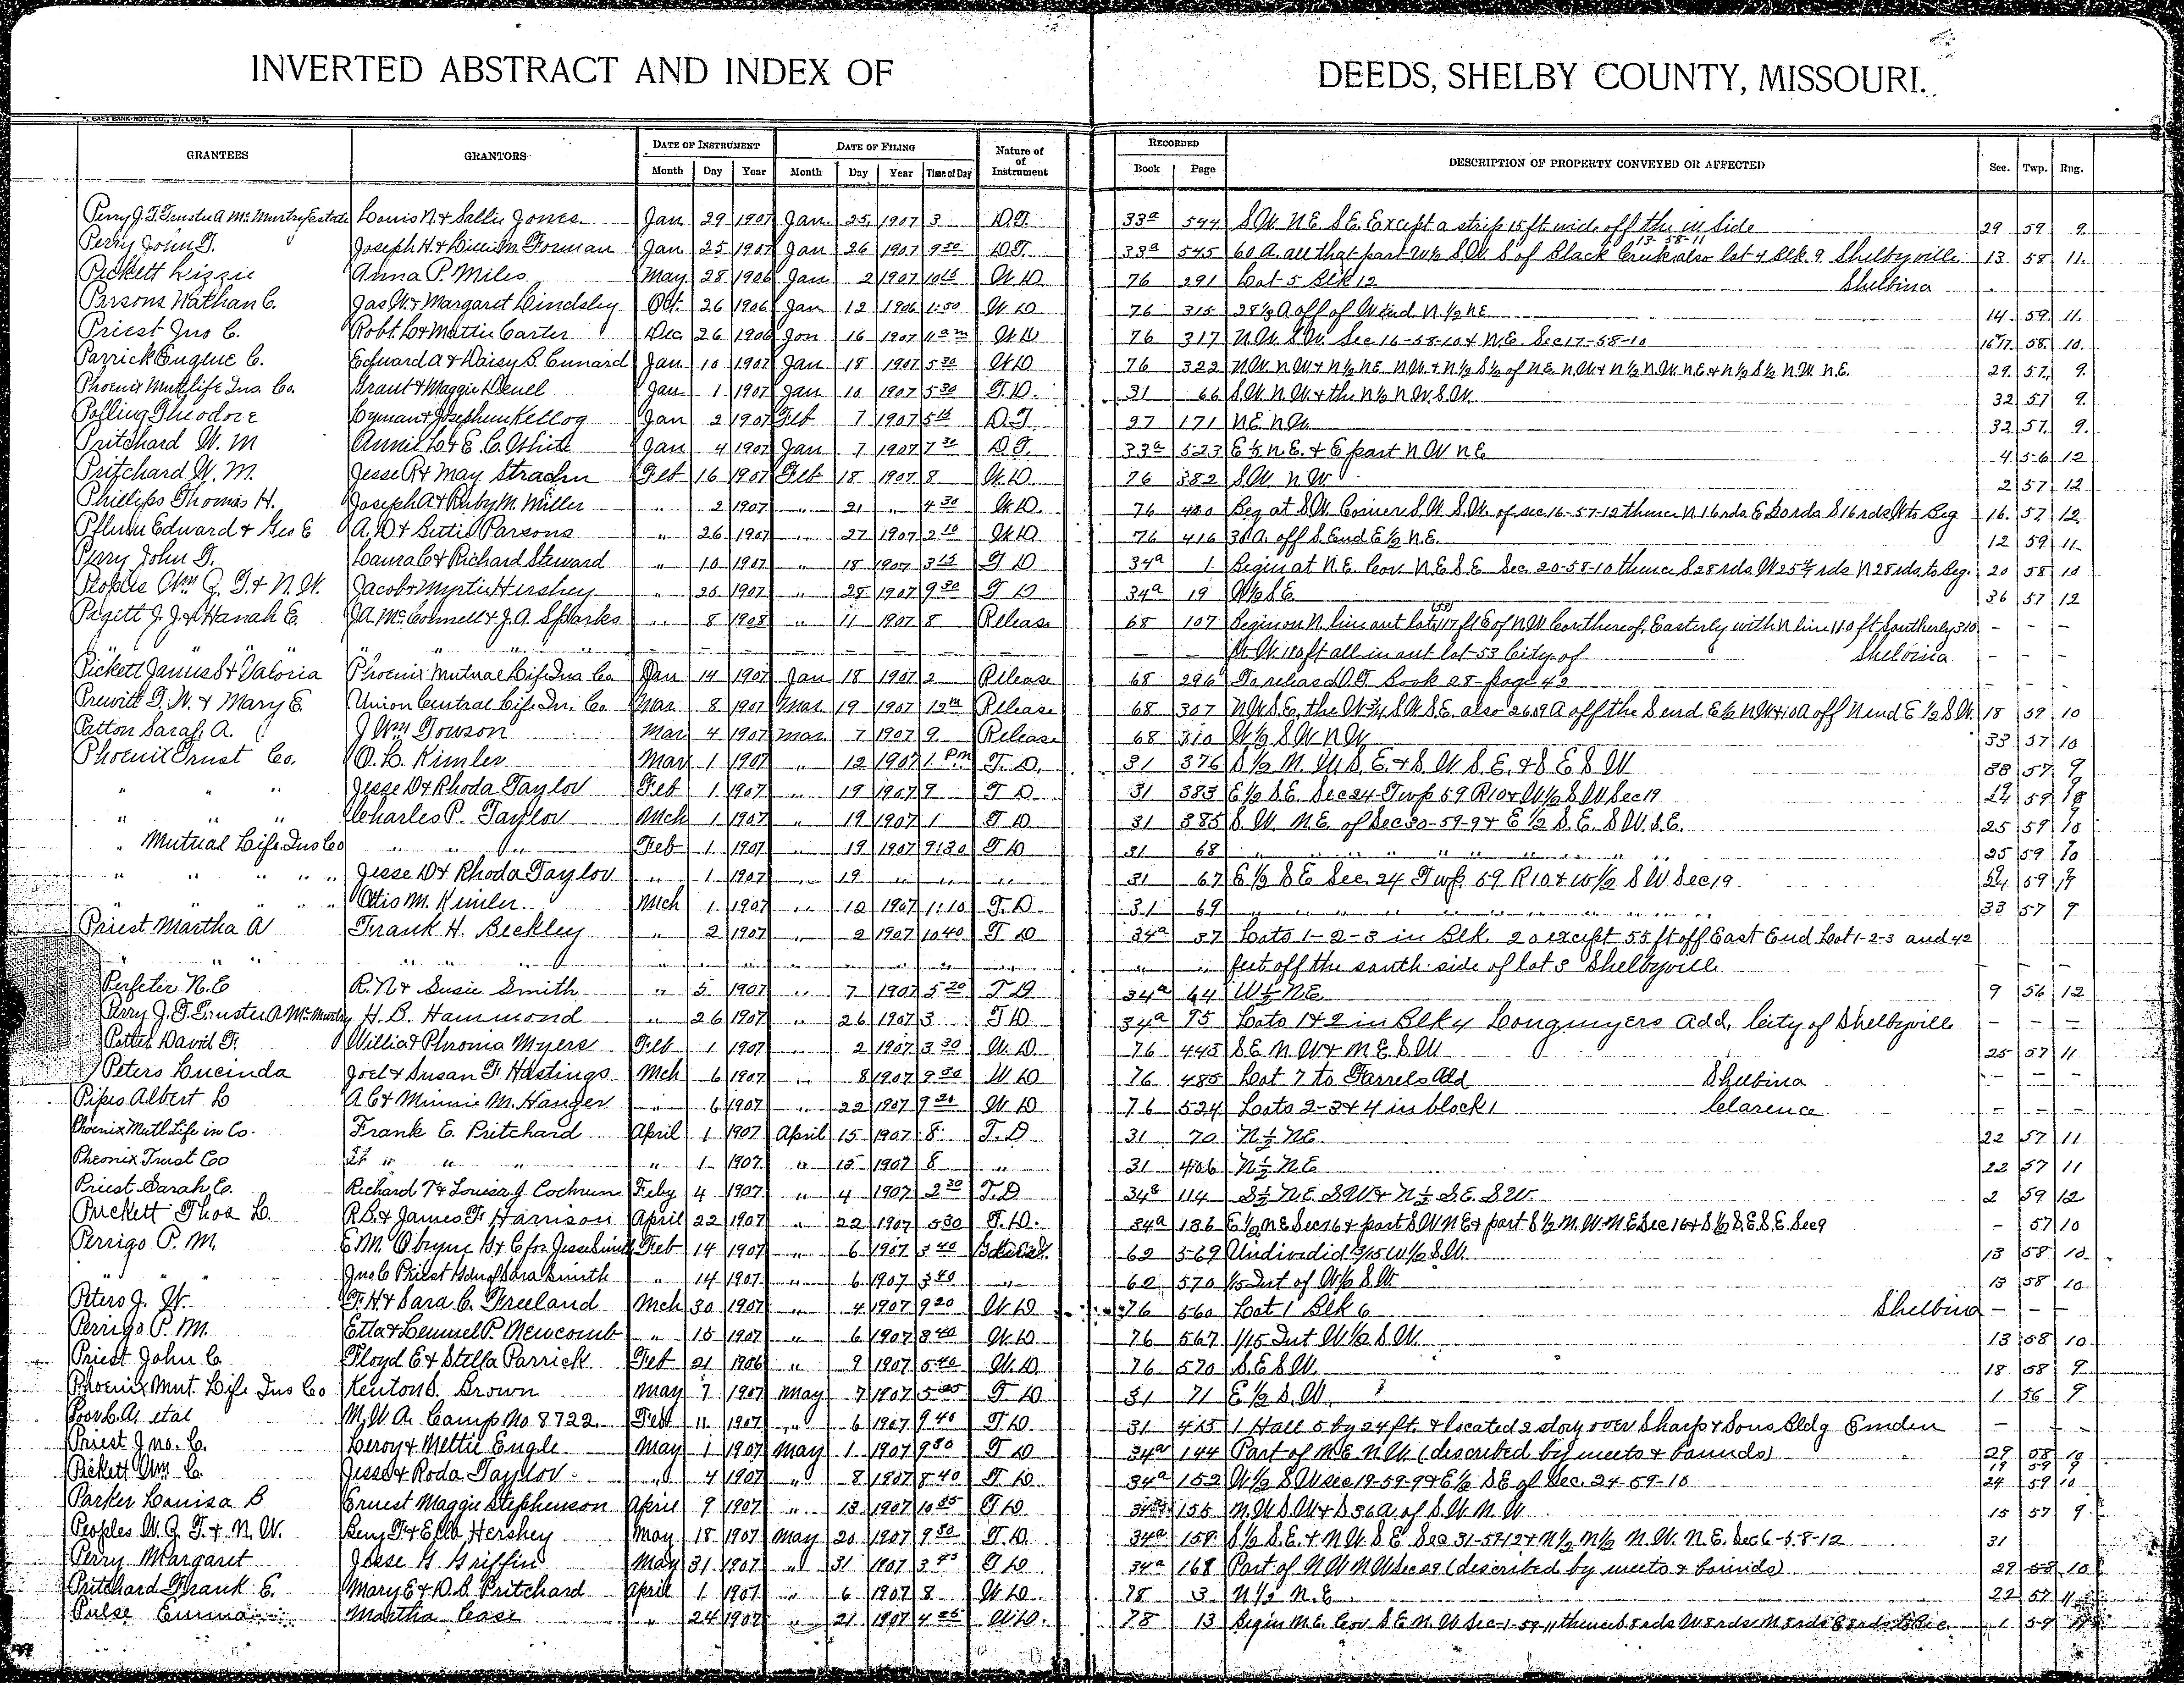 INVERTED ABSTRACT AND INDEX OF DEEDS, SHELBY COUNTY, MISSOURI.
GRANTEES GRANTORS DATE OF INSTRUMENT DATE OF FILING Nature of Instrument RECORDED DESCRIPTION OF PROPERTY CONVEYED OR AFFECTED Sec. Twp. Rng.
Month Day Year Month Day Year Time of Day Book Page
Perry J. T. Trustee A McMurtry Estate Louis N. & Sallie Jones Jan 29 1907 Jan 25 1907 3 D.T. 33a 544 S.W. N.E. S.E. Except a strip 15 ft wide off the W Side 29 59 9
Perry John T. Joseph H. & Lillie M. Forman Jan 25 1907 Jan 26 1907 9 30 D.T. 33a 545 60 A. all that part W½ S.W. S of Black Creek 13-58-11 also lot 4 Blk 9 Shelbyville 13 58 11
Pickett Lizzie Anna P. Miles May 28 1906 Jan 2 1907 10 15 W.D. 76 291 Lot 5 Blk 12 Shelbina
Parsons Nathan C. Jas W. & Margaret Lindsley Oct. 26 1906 Jan 12 1906 1:50 W.D. 76 315 A off of W end N.½ N.E. 14 59 11
Priest Jno C. Robt. L. & Mattie Carter Dec 26 1906 Jan 16 1907 W.D. 76 317 N.W. S.W. Sec 16-58-10 & N.E. Sec 17-58-10 16&17 58 10
Parrick Eugene C. Edward A & Daisy B. Cunard Jan 10 1907 Jan 18 1907 5 30 W.D. 76 322 N.W. N.W. & N½ N.E. N.W. & N½ S½ of N.E. N.W. & N½ N.W. N.E. & N½ S½ N.W. N.E. 29 57 9
Phoenix Mut Life Ins. Co. Grant & Maggie Deuel Jan 1 1907 Jan 10 1907 5 30 T.D. 31 66 S.W. N.W. & the N½ N.W. S.W. 32 57 9
Polling Theodore Lyman & Josephine Kellog Jan 2 1907 Feb 7 1907 5 15 D.T. 27 171 N.E. N.W. 32 57 9
Pritchard W. M Annie L. & E. C. White Jan 4 1907 Jan 7 1907 7 30 D.T. 33a 523 E½ N.E. & E part N.W. N.E. 4 56 12
Pritchard W. M. Jesse R & May Strachn Feb 16 1907 Feb 18 1907 8 W.D. 76 382 S.W. N.W. 2 57 12
Phillips Thomas H. Joseph A & Ruby M. Miller " 2 1907 " 21 " 4 30 W.D. 76 400 Beg at S.W. Corner S.W. S.W. of sec 16-57-12 thence N 16 rds E 20 rds S 16 rds W to Beg 16 57 12
Edward & Geo E A. D. & Bettie Parsons " 26 1907 " 27 1907 2 10 W.D. 76 416 30 A. off S. End E½ N.E. 12 59 11
Perry John T. Laura C. & Richard Steward " 10 1907 " 18 1907 3 15 T.D. 34a 1 Begin at N.E. Cor. N.E. S.E. Sec. 20-58-10 thence S 28 rds W 25 rds N 28 rds to Beg. 20 58 10
Peoples Wm. G. T. & N. W. Jacob & Myrtie Hershey " 25 1907 " 28 1907 9 30 T.D. 34a 19 W½ S.E. 36 57 12
Pagett J. J. & Hanah E. J.A. McConnell & J.A. Sparks " 8 1908 " 11 1907 8 Release 68 107 Begin on N line out lot (53) 117 ft E of N.W. Cor thereof, Easterly with N line 110 ft Southerly 310 - - -
" " " ft W. 110 ft all in out lot 53 City of Shelbina - - -
Pickett James S & Valoria Phoenix Mutual Life Ins Co Jan 14 1907 Jan 18 1907 2 Release 68 296 To release D.T. Book 28 page 42 - - -
Prewitt T. W. & Mary E. Union Central Life In. Co. Mar 8 1907 Mar 19 1907 Release 68 307 N.W. S.E. the W ¾ S.W. S.E. also 26.09 A off the S end E½ N.W. & 10 A off N end E ½ S.W. 18 59 10
Patton Sarah A. J Wm Towson Mar 4 1907 Mar 7 1907 9 Release 68 310 W½ S.W. N.W. 33 57 10
Phoenix Trust Co. O. L. Kimler Mar 1 1907 " 12 1907 1 PM T.D. 31 376 S½ N.W. S.E. & S.W. S.E. & S.E. S.W. 33 57 9
" " " Jesse D & Rhoda Taylor Feb 1 1907 " 19 1907 9 T.D. 31 383 E½ S.E. Sec 24 Twp 59 R 10 & W½ S.W. Sec 19 59
" " " Charles P. Taylor Mch 1 1907 " 19 1907 1 T.D. 31 385 S.W. N.E. of Sec 30-59-9 & E½ S.E. S.W. S.E. 25 59 10
" Mutual Life Ins Co " " " Feb 1 1907 " 19 1907 9:30 T.D. 31 68 " " " " 25 59 10
" " " " Jesse D & Rhoda Taylor " 1 1907 " 19 " " " 31 67 E½ S.E. Sec. 24 Twp. 59 R 10 & W½ S.W. Sec 19 59
" " " " Otis M. Kimler Mch 1 1907 " 12 1907 1:10 T.D. 31 69 " " " " 33 57 9
Priest Martha A Frank H. Beckley " 2 1907 " 2 1907 10 40 T.D. 34a 37 Lots 1-2-3 in Blk. 20 except 55 ft off East End Lot 1-2-3 and 42
" " " " " feet off the south side of lot 3 Shelbyville - - -
Perfeter N. E R. N & Susie Smith " 5 1907 " 7 1907 5 20 T.D. 34a 64 W½ N.E. 9 56 12
Perry J. T. Trustee A McMurtry H. B. Hammond " 26 1907 " 26 1907 3 T.D. 34a 95 Lots 1 & 2 in Blk 4 Longmyers Add, City of Shelbyville - - -
David F. Willia & Phronia Myers Feb 1 1907 " 2 1907 3 30 W.D. 76 445 S.E. N.W. & N.E. S.W. 25 57 11
Peters Lucinda Joel & Susan F. Hastings Mch 6 1907 " 8 1907 9 30 W.D. 76 485 Lot 7 to Farrels Add Shelbina - - -
Pipes Albert L A C & Minnie M. Hanger " 6 1907 " 22 1907 9 20 W.D. 76 524 Lots 2-3 & 4 in block 1 Clarence - - -
Phoenix Mutl Life in Co. Frank E. Pritchard April 1 1907 April 15 1907 8 T.D 31 70 N½ N.E. 22 57 11
Pheonix Trust Co " " " " 1 1907 " 15 1907 8 " 31 406 N½ N.E 22 57 11
Priest Sarah E. Richard T & Louisa J. Cochrum Feby 4 1907 " 4 1907 2 30 T.D 34a 114 S½ N.E. S.W. & N½ S.E. S.W. 2 59 12
Puckett Thos L. R.B. & James F. Harrison April 22 1907 " 22 1907 5 30 T.D. 34a 136 E½ N.E. Sec 16 & part S.W. N.E. & part S½ N.W. N.E. Sec 16 & S½ S.E. S.E. Sec 9 - 57 10
Perrigo P. M. E.M. Obryne G & C for Jesse Smith Feb 14 1907 " 6 1907 3 40 62 569 Undivided 2/15 W½ S.W. 13 58 10
" " " Jno C Priest Gdn of Sara Smith " 14 1907 " 6 1907 3 40 " 62 570 1/15 Int of W½ S.W. 13 58 10
Peters J. W. F. H. & Sara C. Freeland Mch 30 1907 " 4 1907 9 20 W.D. 76 560 Lot 1 Blk 6 Shelbina - - -
Perrigo P. M. Etta & Lemuel P. Newcomb " 15 1907 " 6 1907 8 40 W.D. 76 567 1/15 Int W½ S.W. 13 58 10
Priest John C. Floyd E & Stella Parrick Feb 21 1906 " 9 1907 5 40 W.D. 76 570 S.E. S.W. 18 58 9
Phoenix Mut. Life Ins Co Kenton S. Brown May 7 1907 May 7 1907 T.D. 31 71 E½ S.W. 1 56 9
Poor L.A. et al M.W.A. Camp No. 8722 Feb 11 1907 " 6 1907 9 40 T.D. 31 415 1 Hall 5 by 24 ft. & located 2 story over Sharp & Sons Bldg Emden - - -
Priest Jno. C. Leroy & Mettie Engle May 1 1907 May 1 1907 9 30 T.D. 34a 144 Part of N.E. N.W. (described by meets & bounds) 29 58 10
Pickett Wm. C. Jesse & Roda Taylor " 4 1907 " 8 1907 8 40 T.D. 34a 152 W½ S.W. sec 19-59-9 & E½ S.E. of Sec. 24-59-10 19 59 9 24 59 10
Parker Louisa B Ernest Maggie Stephenson April 9 1907 " 13 1907 10 35 T.D. 34a 155 N.W. S.W. & S 36 A of S.W. N.W. 15 57 9
Peoples W. G. T. & N. W. Benj. F & Ella Hershey May 18 1907 May 20 1907 9 30 T.D. 34a 158 S½ S.E. & N.W. S.E. Sec 31-57-12 & N½ N½ N.W. N.E. Sec 6-58-12 31
Perry Margaret Jesse G Griffin May 31 1907 " 31 1907 T.D. 34a 168 Part of N.W. N.W. Sec 29 (described by meets & bounds) 29 58 10
Pritchard Frank E. Mary E & D.S. Pritchard April 1 1907 " 6 1907 8 W.D. 78 3 N½ N.E. 22 57 11
Pulse Emma Martha Case " 24 1907 " 21 1907 4 25 W.D. 78 13 Begin N.E. Cor S.E. N.W. Sec 1-59-11 thence S rds W rds N rds E rds to Be 1 59